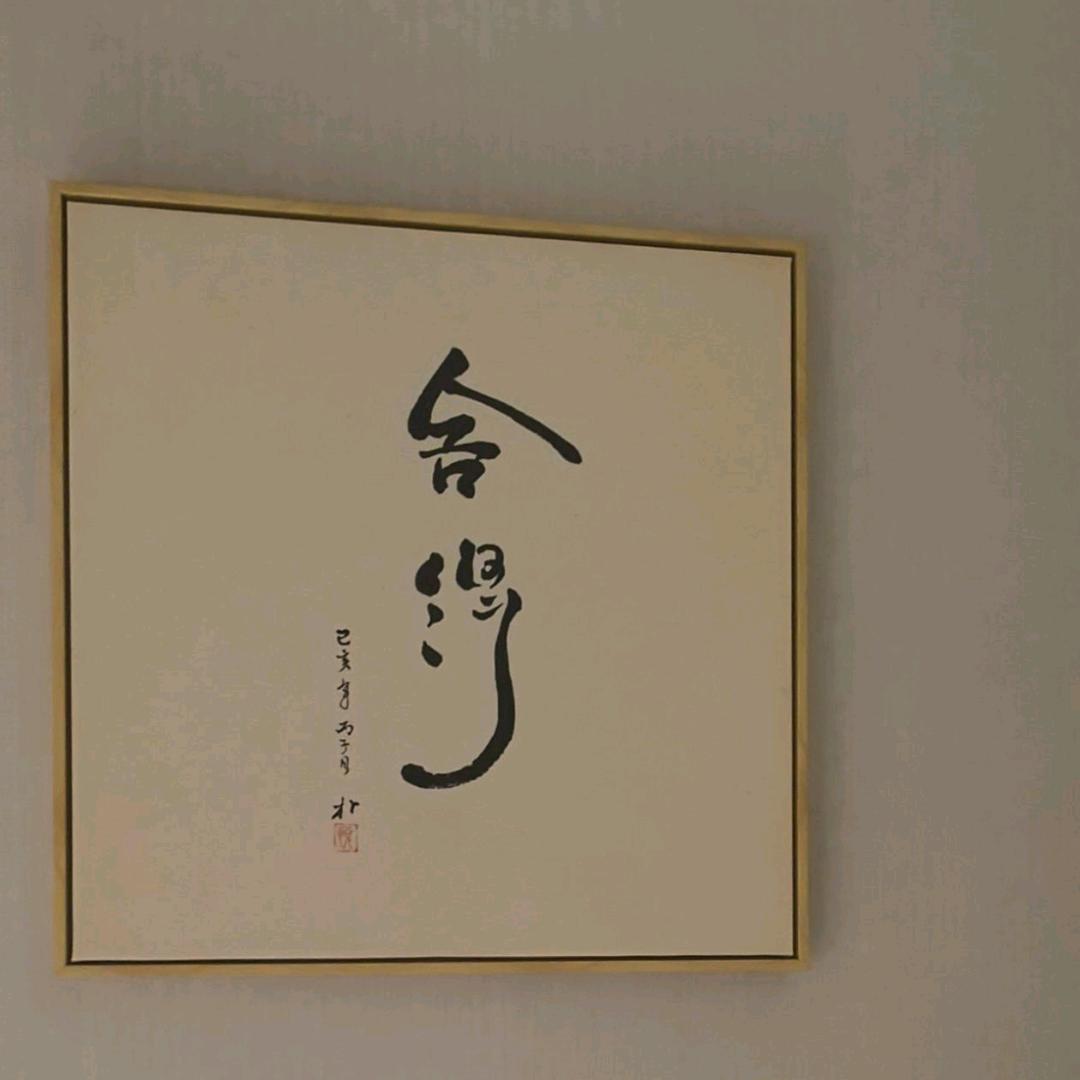 舍得
己亥年丙子月